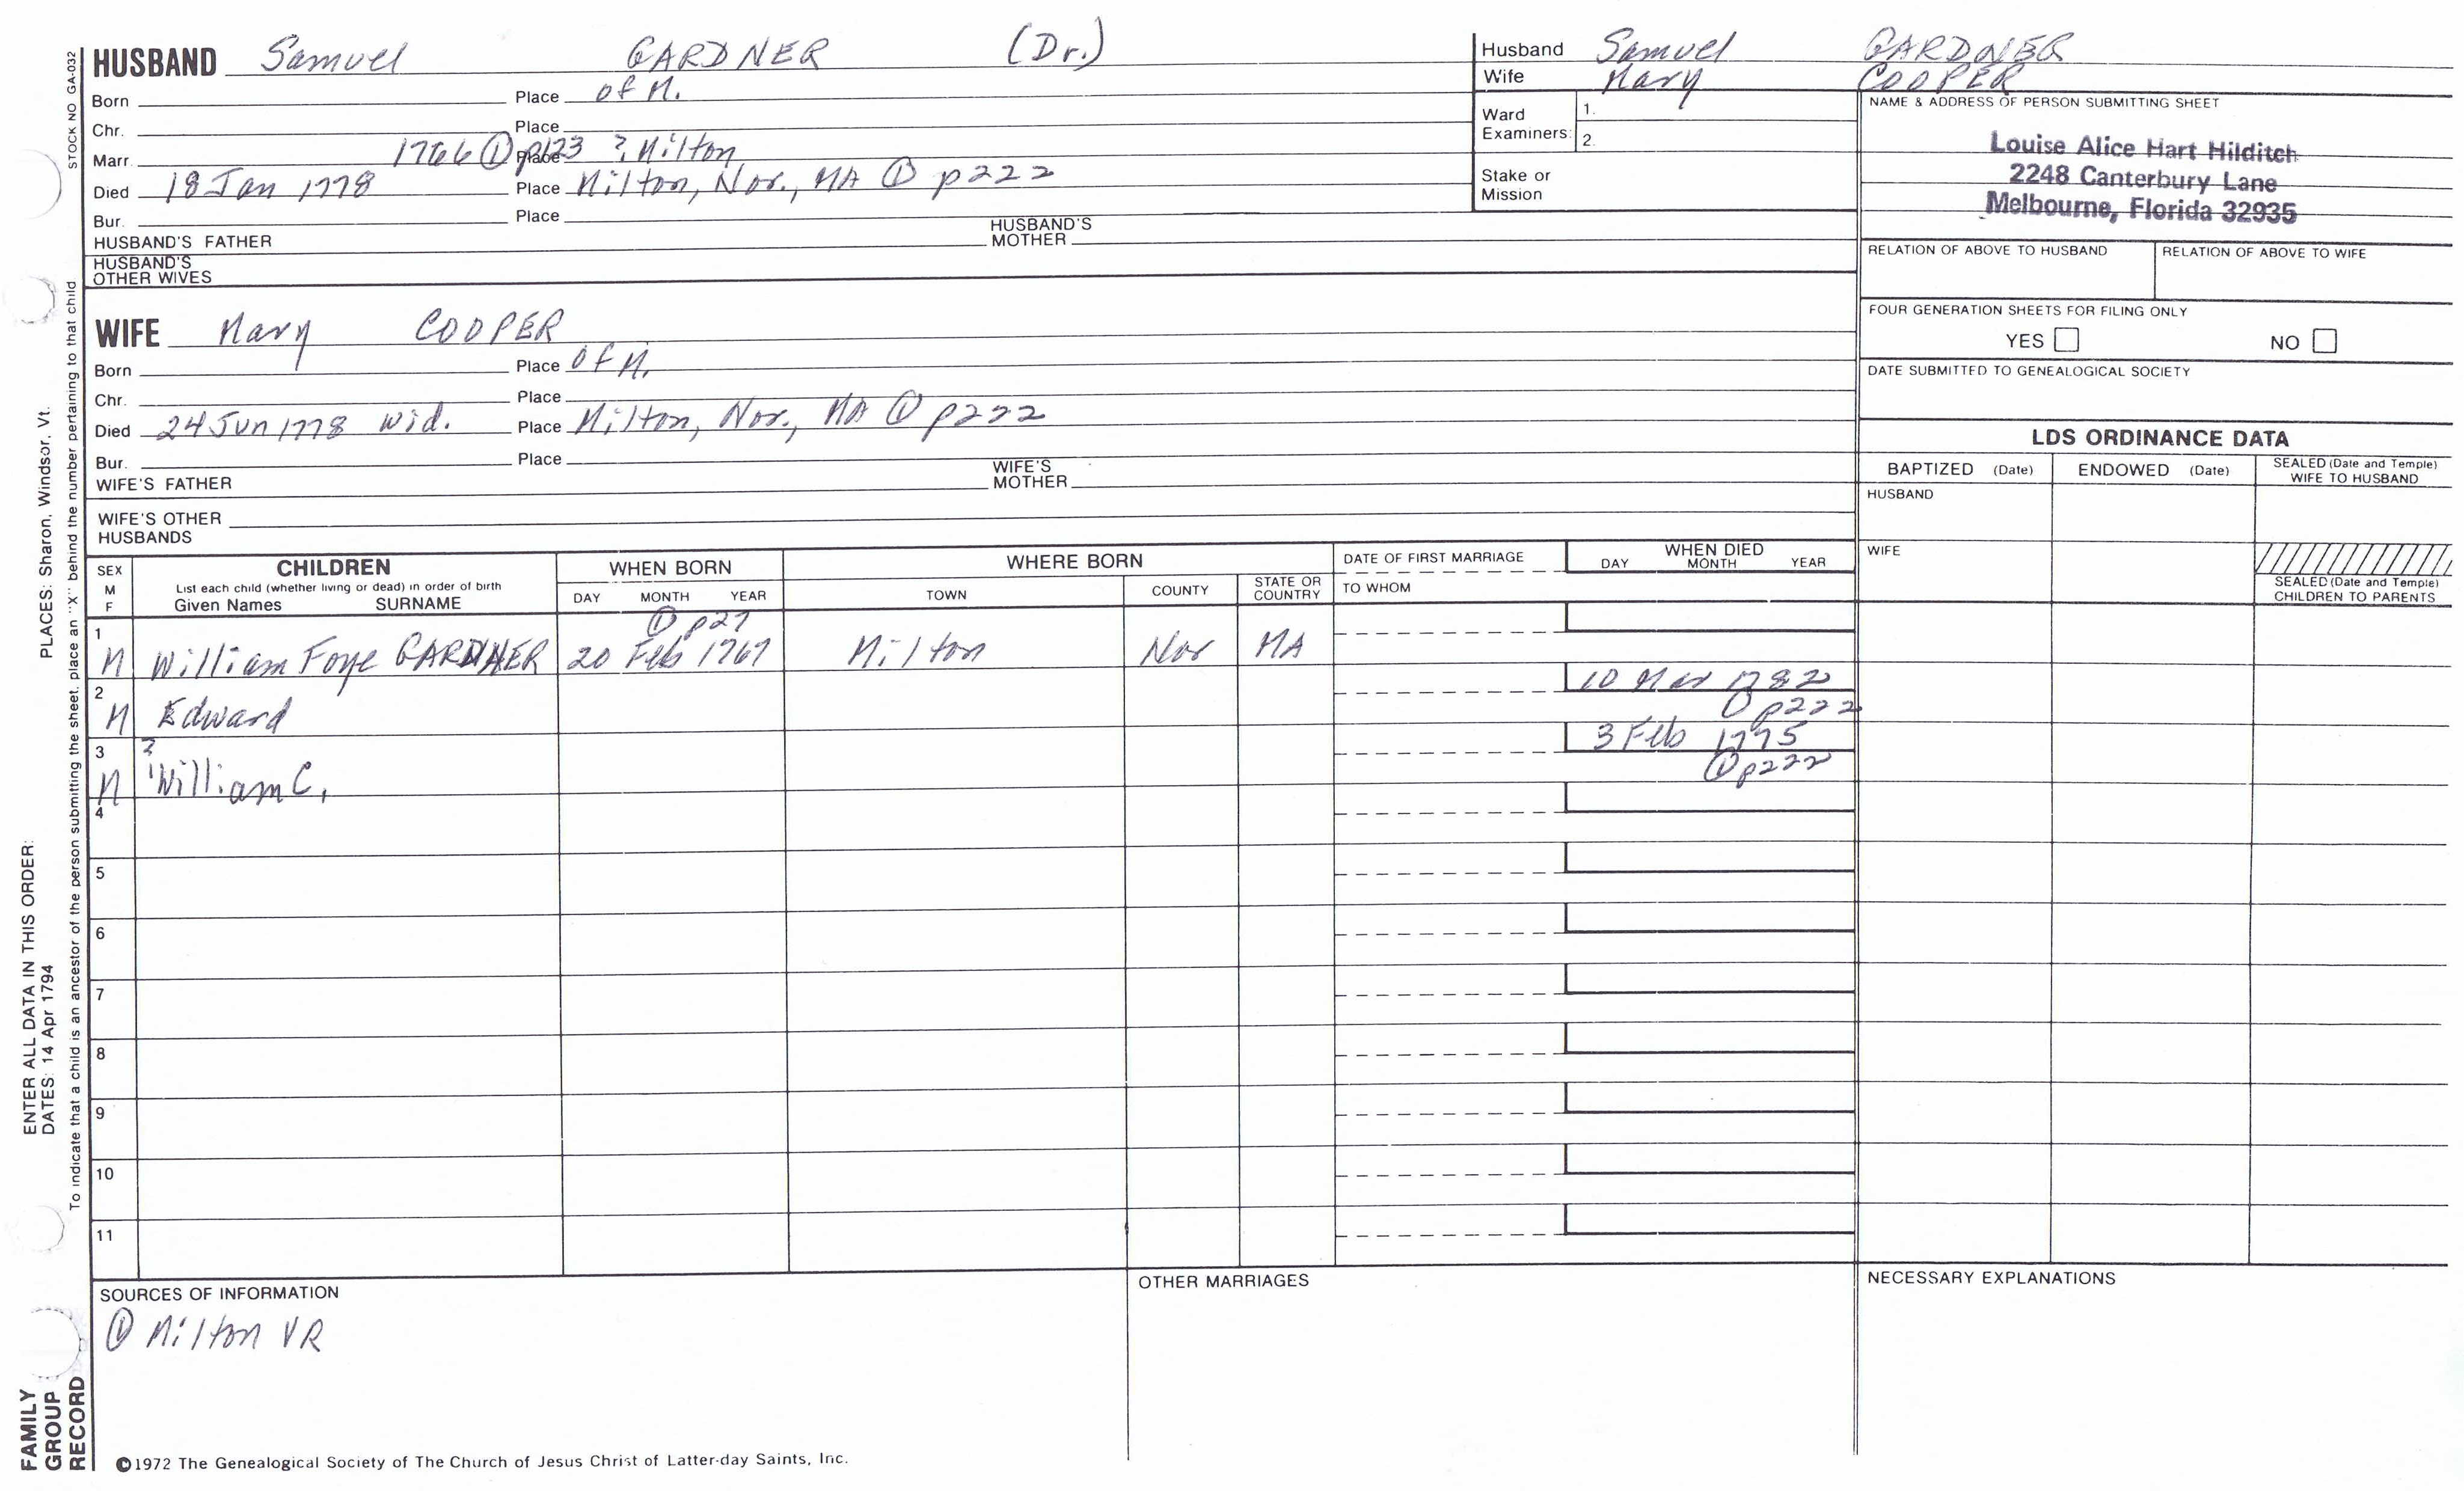 STOCK NO GA-032
HUSBAND Samuel GARDNER (Dr.)
Born Place of M.
Chr. Place
Marr. 1766 ① p123 Place ? Milton
Died 18 Jan 1778 Place Milton, Nor., MA ① p222
Bur. Place
HUSBAND'S FATHER HUSBAND'S MOTHER
HUSBAND'S OTHER WIVES
WIFE Mary COOPER
Born Place of M.
Chr. Place
Died 24 Jun 1778 Wid. Place Milton, Nor., MA ① p222
Bur. Place
WIFE'S FATHER WIFE'S MOTHER
WIFE'S OTHER HUSBANDS
Husband Samuel GARDNER
Wife Mary COOPER
Ward Examiners: 1.
2.
Stake or Mission
NAME & ADDRESS OF PERSON SUBMITTING SHEET
Louise Alice Hart Hilditch
2248 Canterbury Lane
Melbourne, Florida 32935
RELATION OF ABOVE TO HUSBAND RELATION OF ABOVE TO WIFE
FOUR GENERATION SHEETS FOR FILING ONLY
YES NO
DATE SUBMITTED TO GENEALOGICAL SOCIETY
LDS ORDINANCE DATA
BAPTIZED (Date) ENDOWED (Date) SEALED (Date and Temple) WIFE TO HUSBAND
HUSBAND
WIFE
SEALED (Date and Temple) CHILDREN TO PARENTS
SEX M F
CHILDREN
List each child (whether living or dead) in order of birth
Given Names SURNAME
WHEN BORN
DAY MONTH YEAR
WHERE BORN
TOWN COUNTY STATE OR COUNTRY
DATE OF FIRST MARRIAGE
TO WHOM
WHEN DIED
DAY MONTH YEAR
① p27
1 M William Foye GARDNER 20 Feb 1767 Milton Nor MA
10 Mar 1782
2 M Edward ① p222
3 Feb 1775
3 M ? William C. ① p222
4
5
6
7
8
9
10
11
SOURCES OF INFORMATION
① Milton VR
OTHER MARRIAGES
NECESSARY EXPLANATIONS
©1972 The Genealogical Society of The Church of Jesus Christ of Latter-day Saints, Inc.
FAMILY GROUP RECORD
ENTER ALL DATA IN THIS ORDER:
DATES: 14 Apr 1794 PLACES: Sharon, Windsor, Vt.
To indicate that a child is an ancestor of the person submitting the sheet, place an "X" behind the number pertaining to that child